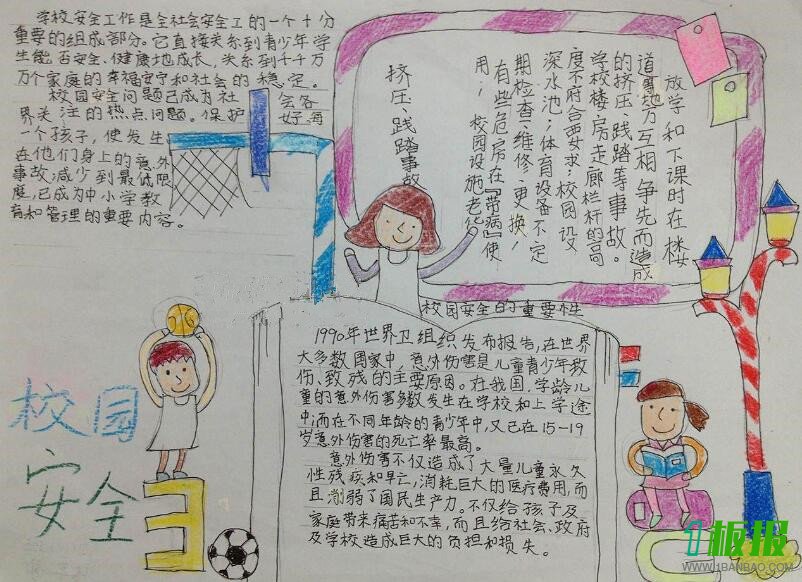 学校安全工作是全社会安全工的一个十分
重要的组成部分。它直接关系到青少年学
生能否安全、健康地成长,关系到千千万
万个家庭的幸福安宁和社会的稳定。
校园安全问题已成为社会各
界关注的热点问题。保护好每
一个孩子,使发生
在他们身上的意外
事故减少到最低限
度,已成为中小学教
育和管理的重要内容。
挤压、践踏事故
放学和下课时在楼
道等地方互相争先而造成
的挤压、践踏等事故。
学校楼房走廊栏杆的高
度不符合要求;校园设
深水池;体育设备不定
期检查、维修、更换;
有些危房在『带病』使
用;校园设施老化
校园安全的重要性
1990年世界卫组织发布报告,在世界
大多数国家中,意外伤害是儿童青少年致
伤、致残的主要原因。在我国,学龄儿
童的意外伤害多数发生在学校和上学途
中;而在不同年龄的青少年中,又已在15-19
岁意外伤害的死亡率最高。
意外伤害不仅造成了大量儿童永久
性残疾和早亡,消耗巨大的医疗费用,而
且削弱了国民生产力。不仅给孩子及
家庭带来痛苦和不幸,而且给社会、政府
及学校造成巨大的负担和损失。
校园
安全
1板报
WWW.1BANBAO.COM